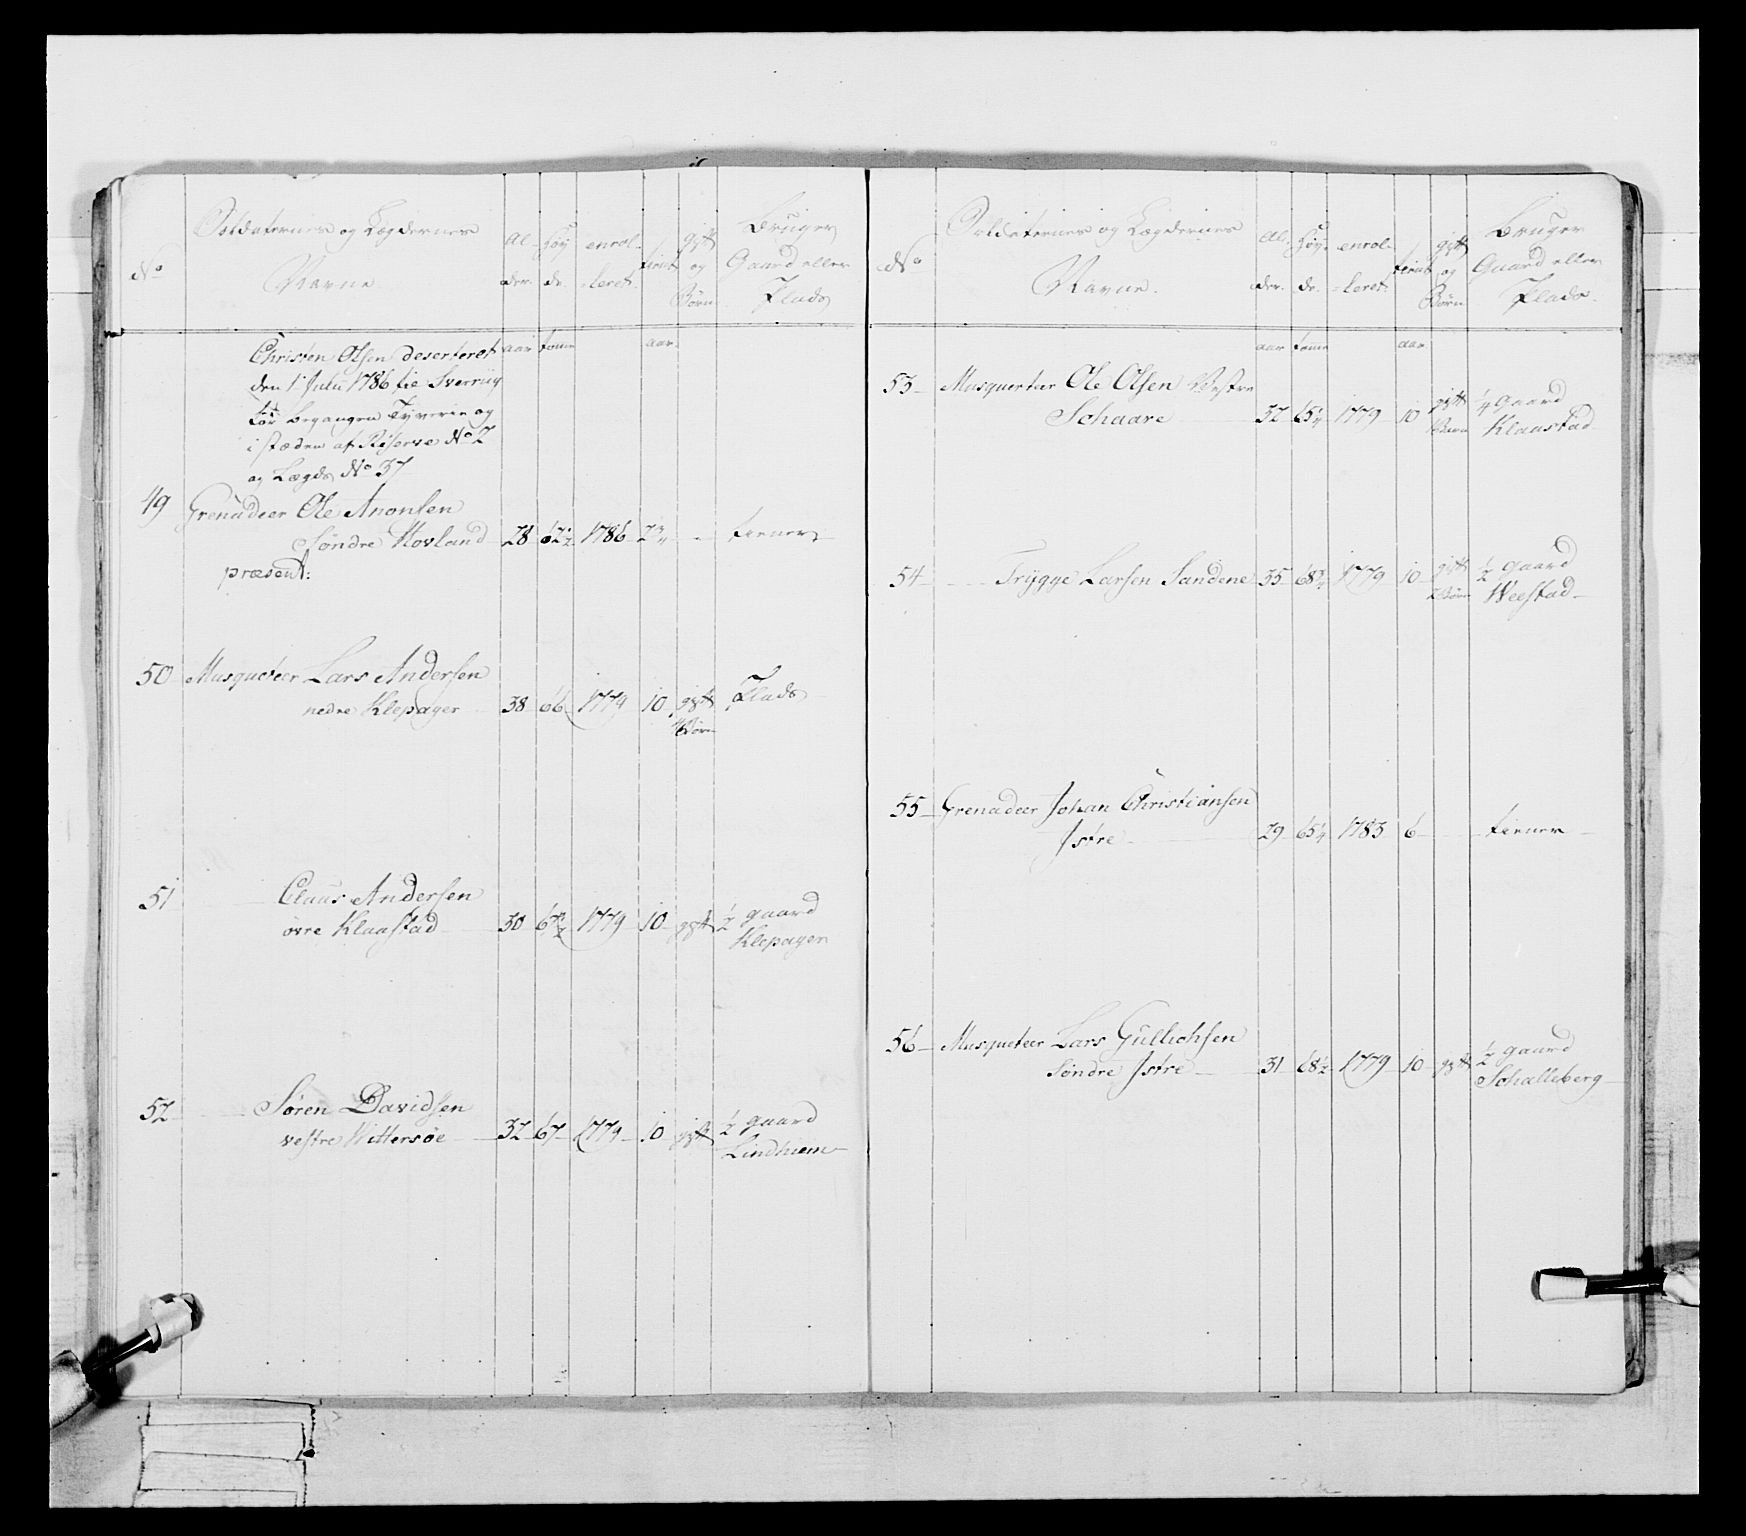 No Soldaternes og Lægdernes Navne. Al-der. Høy-de. enrol-leret. tient gift og Børn Bruger Gaard eller Plads
aar tomme aar
Christen Olsen deserteret
den 1 Julii 1786 til Sverrig
for begangen Tyverie og
i stæden af Reserve No 2
og Lægds No 37
49 Grenadeer Ole Anonsen
Søndre Hovland 28 62½ 1786 2¾ - tiener
præsent:
50 Musqueteer Lars Andersen
nedre Klepager 38 66 1779 10 gift Plads
4 Børn
51 Claus Andersen
øvre Klaastad 30 1779 10 gift ½ gaard
Klepager
52 Søren Davidsen
vestre Wittersøe 32 67 1779 10 gift ½ gaard
Lindhiem
No Soldaternes og Lægdernes Navne. Al-der. Høy-de. enrol-leret. tient gift og Børn Bruger Gaard eller Plads.
aar tomme aar
53 Musqueteer Ole Olsen Vestre
Schaare 32 65¼ 1779 10 gift ¼ Gaard
Barn Klaastad
54 Trÿgge Larsen Sandene 35 68¾ 1779 10 gift ½ gaard
2 Børn Weestad
55 Grenadeer Johan Christiansen
Istre 29 65¼ 1783 6 tiener
56 Musqueteer Lars Gullichsen
Søndre Istre 31 68½ 1779 10 gift ½ gaard
Schalleberg